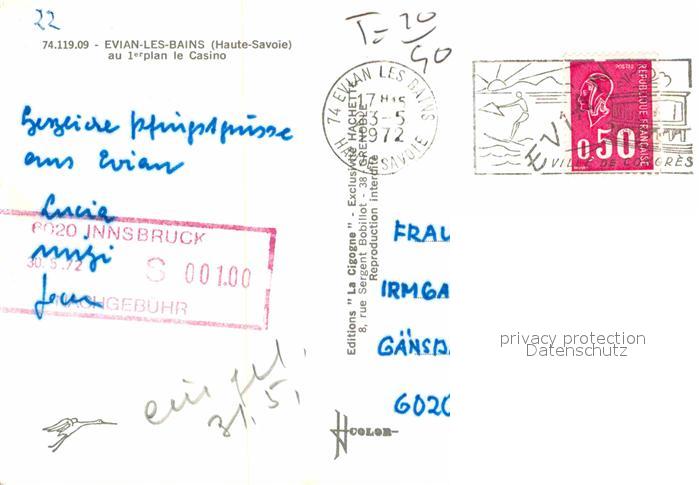 22
74.119.09 - EVIAN-LES-BAINS (Haute-Savoie)
au 1er plan le Casino
T = 20/90
74 EVIAN LES BAINS
17 H
3-5
1972
HAUTE SAVOIE
EVIAN
VILLE DE CONGRÈS
POSTES
REPUBLIQUE FRANÇAISE
0,50
Herzliche Pfingstgrüsse
aus Evian
Lucia
6020 INNSBRUCK
30.5.72 S 001.00
NACHGEBÜHR
Editions " La Cigogne " - Exclusivité HACHETTE
8, rue Sergent Bobillot - 38 GRENOBLE
Reproduction interdite
FRAU
IRMGA
GÄNSB
6020
privacy protection
Datenschutz
eingel.
31.5.
COLOR